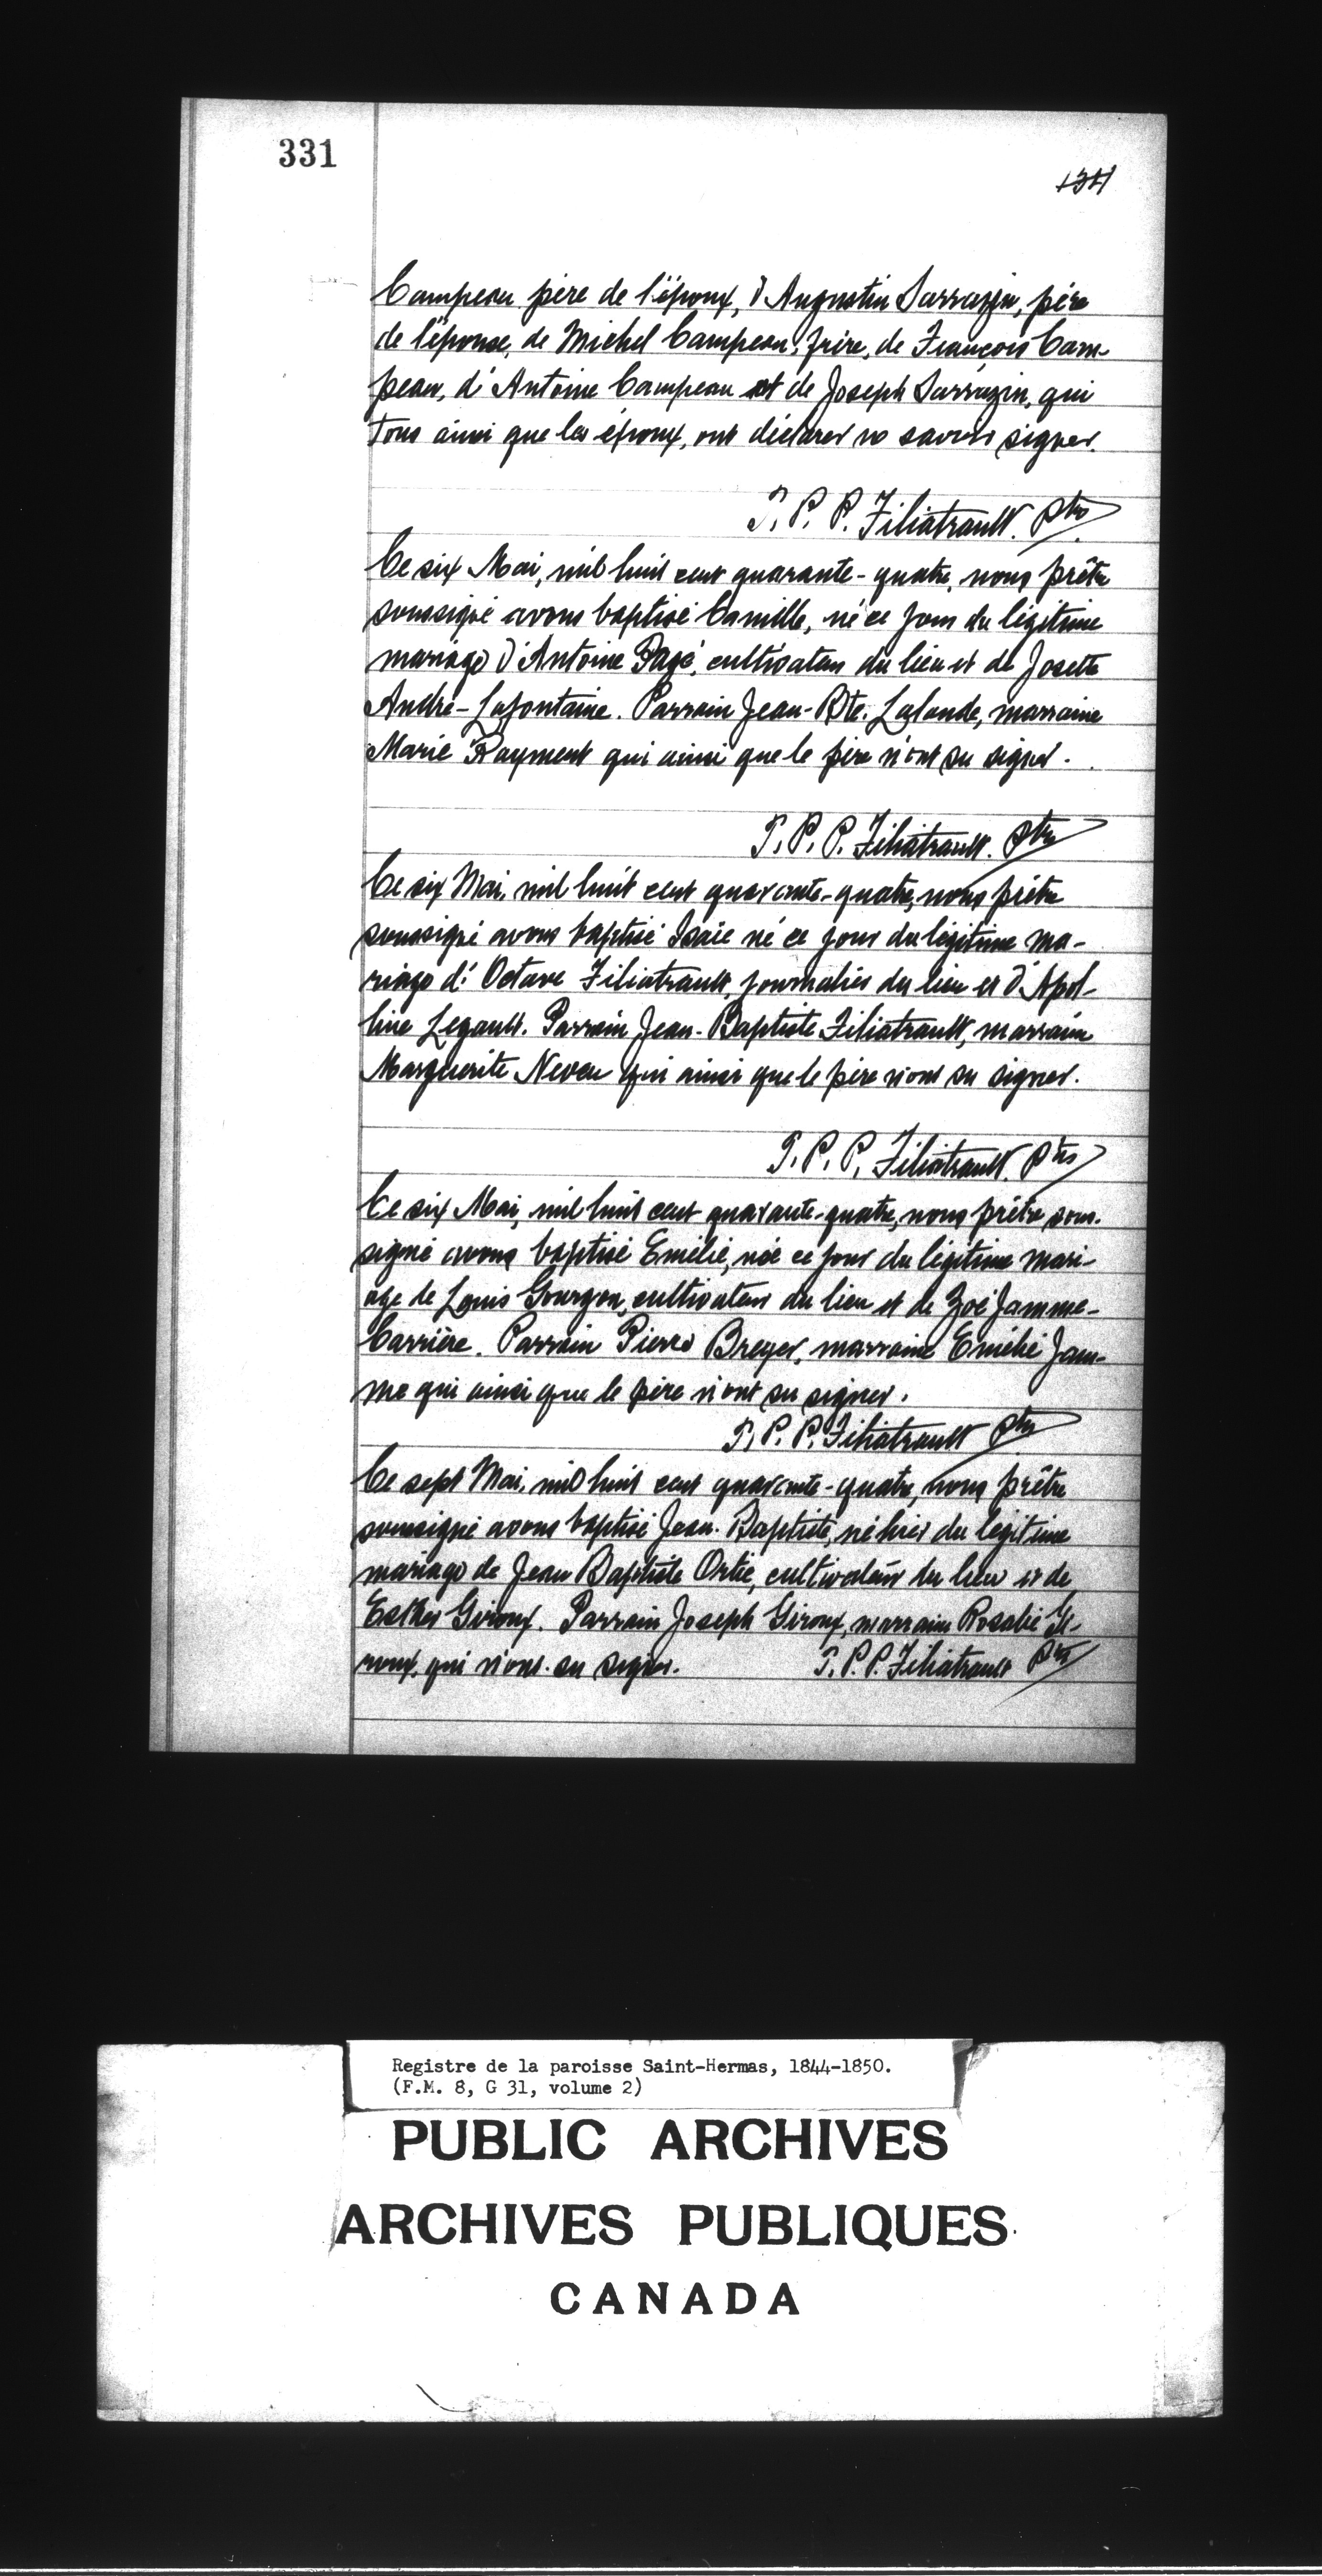 331
Campeau père de l'époux, d'Augustin Sarrazin, père
de l'épouse, de Michel Campeau, frère, de François Cam-
peau, d'Antoine Campeau et de Joseph Sarrazin, qui
tous ainsi que les époux, ont déclarer ne savoir signer.
T. P. P. Filiatrault. Ptre
Ce six Mai, mil huit cent quarante-quatre, nous prêtre
soussigné avons baptisé Camille, né ce jour du légitime
mariage d'Antoine Pagé, cultivateur du lieu et de Josette
André-Lafontaine. Parrain Jean-Bte. Lalonde, marraine
Marie Rayment qui ainsi que le père n'ont su signer.
T. P. P. Filiatrault. Ptre
Ce six Mai, mil huit cent quarante-quatre, nous prêtre
soussigné avons baptisé Isaïe né ce jour du légitime ma-
riage d'Octave Filiatrault, journalier du lieu et d'Apol-
line Legault. Parrain Jean-Baptiste Filiatrault, marraine
Marguerite Neveu qui ainsi que le père n'ont su signer.
T. P. P. Filiatrault. Ptre
Ce six Mai, mil huit cent quarante-quatre, nous prêtre sous-
signé avons baptisé Emélie, née ce jour du légitime mari-
age de Louis Gourgon, cultivateur du lieu et de Zoé Jamme-
Carrière. Parrain Pierre Breyer, marraine Emélie Jam-
me qui ainsi que le père n'ont su signer.
T. P. P. Filiatrault Ptre
Ce sept Mai, mil huit cent quarante-quatre, nous prêtre
soussigné avons baptisé Jean-Baptiste, né hier du légitime
mariage de Jean Baptiste Ortie, cultivateur du lieu et de
Esther Giroux. Parrain Joseph Giroux, marraine Rosalie Gi-
roux, qui n'ont su signer. T. P. P. Filiatrault Ptre
Registre de la paroisse Saint-Hermas, 1844-1850.
(F.M. 8, G 31, volume 2)
PUBLIC ARCHIVES
ARCHIVES PUBLIQUES
CANADA